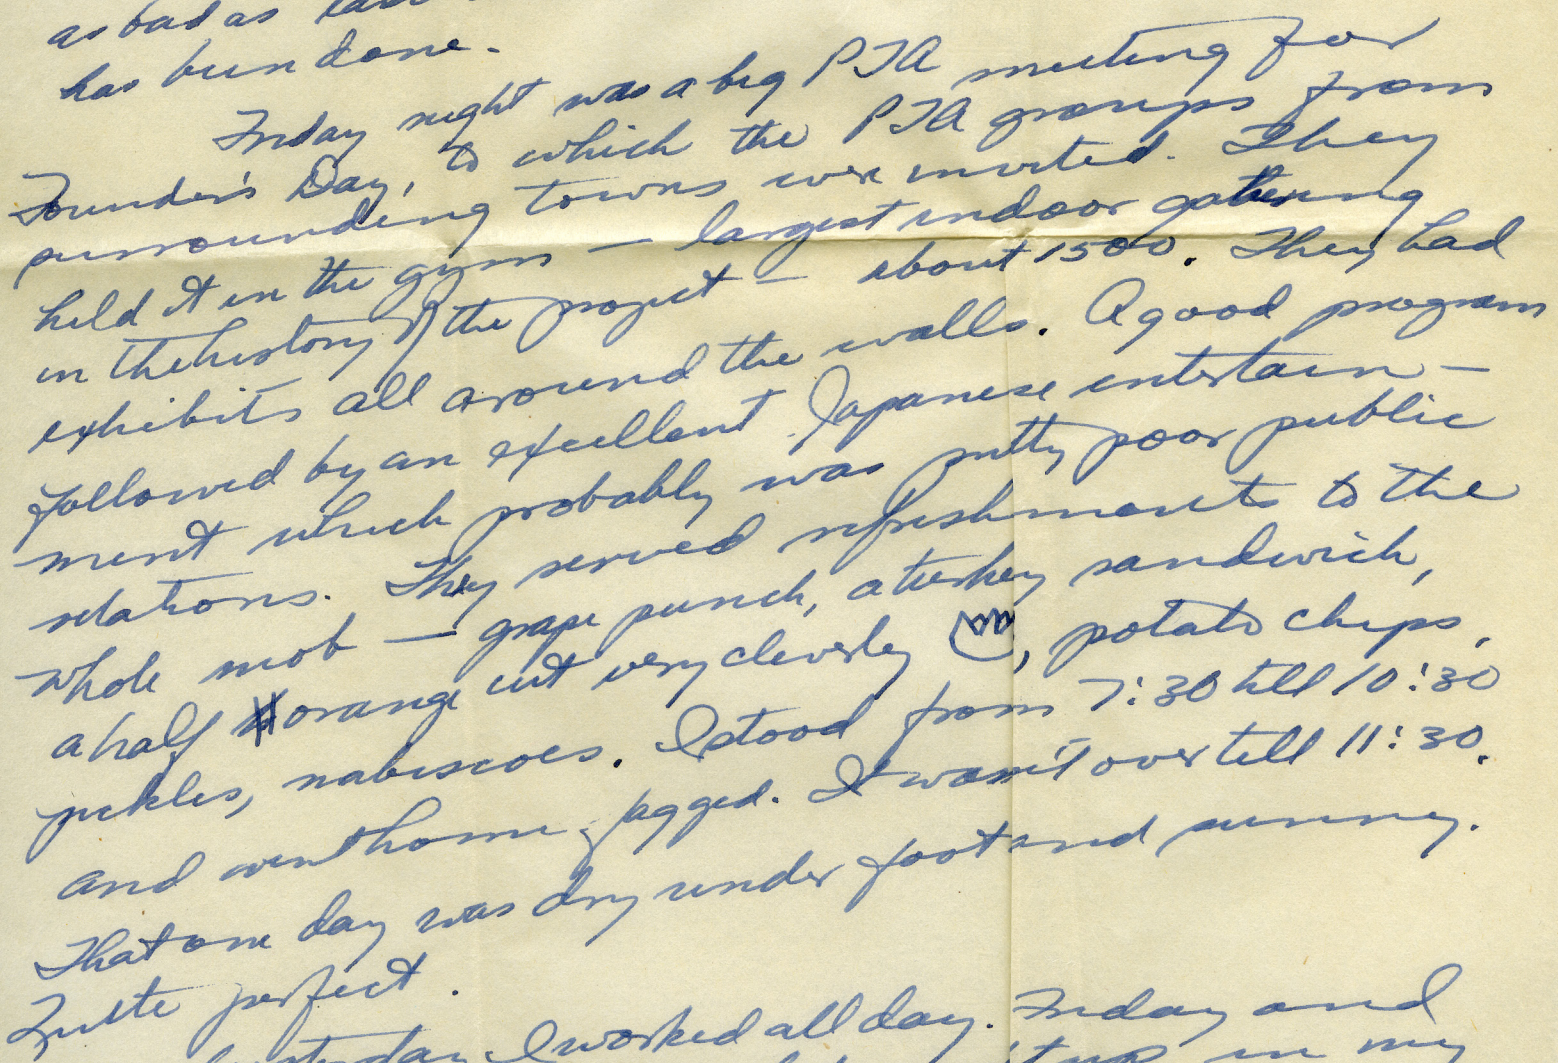 as bad as
has been done.
Friday night was a big PTA meeting for
Founder's Day, to which the PTA groups from
surrounding towns were invited. They
held it in the gym — largest indoor gathering
in the history of the project — about 1500. They had
exhibits all around the walls. A good program
followed by an excellent Japanese entertain-
ment which probably was pretty poor public
relations. They served refreshments to the
whole mob — grape punch, a turkey sandwich,
a half orange cut very cleverly , potato chips,
pickles, nabiscoes. I stood from 7:30 till 10:30
and went home, fagged. It wasn't over till 11:30.
That one day was dry under foot and sunny.
Quite perfect.
Yesterday I worked all day. Friday and
up in my